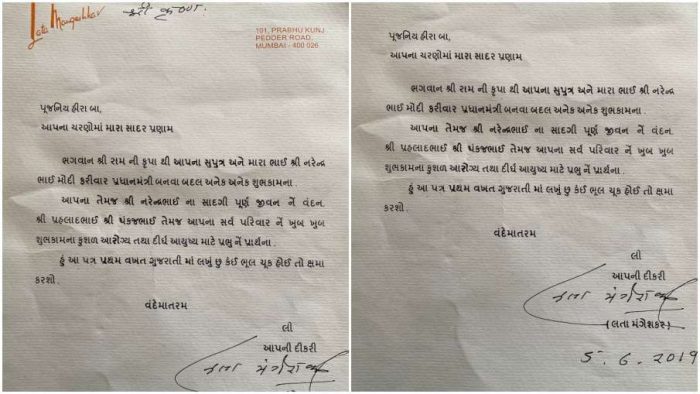 Lata Mangeshkar
શ્રી કૃષ્ણ
101, PRABHU KUNJ
PEDDER ROAD,
MUMBAI - 400 026
પૂજનિય હીરા બા,
આપના ચરણોમાં મારા સાદર પ્રણામ
ભગવાન શ્રી રામ ની કૃપા થી આપના સુપુત્ર અને મારા ભાઈ શ્રી નરેન્દ્ર
ભાઈ મોદી ફરીવાર પ્રધાનમંત્રી બનવા બદલ અનેક અનેક શુભકામના.
આપના તેમજ શ્રી નરેન્દ્રભાઈ ના સાદગી પૂર્ણ જીવન નેં વંદન.
શ્રી પ્રહલાદભાઈ શ્રી પંકજભાઈ તેમજ આપના સર્વ પરિવાર નેં ખુબ ખુબ
શુભકામના કુશળ આરોગ્ય તથા દીર્ઘ આયુષ્ય માટે પ્રભુ નેં પ્રાર્થના.
હું આ પત્ર પ્રથમ વખત ગુજરાતી માં લખું છુ કંઈ ભૂલ ચૂક હોઈ તો ક્ષમા
કરશો.
વંદેમાતરમ
લી
આપની દીકરી
લતા મંગેશકર
પૂજનિય હીરા બા,
આપના ચરણોમાં મારા સાદર પ્રણામ
ભગવાન શ્રી રામ ની કૃપા થી આપના સુપુત્ર અને મારા ભાઈ શ્રી નરેન્દ્ર
ભાઈ મોદી ફરીવાર પ્રધાનમંત્રી બનવા બદલ અનેક અનેક શુભકામના.
આપના તેમજ શ્રી નરેન્દ્રભાઈ ના સાદગી પૂર્ણ જીવન નેં વંદન.
શ્રી પ્રહલાદભાઈ શ્રી પંકજભાઈ તેમજ આપના સર્વ પરિવાર નેં ખુબ ખુબ
શુભકામના કુશળ આરોગ્ય તથા દીર્ઘ આયુષ્ય માટે પ્રભુ નેં પ્રાર્થના.
હું આ પત્ર પ્રથમ વખત ગુજરાતી માં લખું છુ કંઈ ભૂલ ચૂક હોઈ તો ક્ષમા
કરશો.
વંદેમાતરમ
લી
આપની દીકરી
લતા મંગેશકર
(લતા મંગેશકર)
5.6.2019